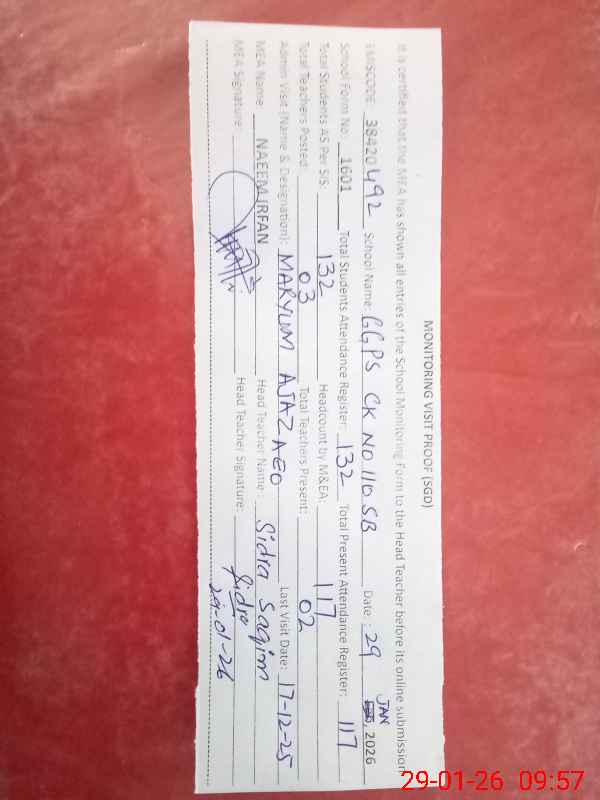 MONITORING VISIT PROOF (SGD)
It is certified that the MEA has shown all entries of the School Monitoring Form to the Head Teacher before its online submission
EMISCODE: 38420492 School Name: GGPS CK NO 110 SB Date: : 29 JAN, 2026
School Form No: 1601 Total Students Attendance Register: 132 Total Present Attendance Register: 117
Total Students AS Per SIS: 132 Headcount by M&EA: 117
Total Teachers Posted: 03 Total Teachers Present: 02
Admin Visit (Name & Designation): MARYUM AJAZ AEO Last Visit Date: 17-12-25
MEA Name: NAEEM IRFAN Head Teacher Name : Sidra Saqim
MEA Signature: Head Teacher Signature: Sidra
29-01-26
29-01-26 09:57